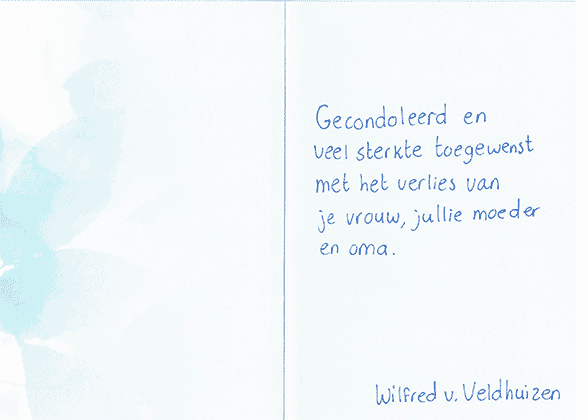 Gecondoleerd en
veel sterkte toegewenst
met het verlies van
je vrouw, jullie moeder
en oma.
Wilfred v. Veldhuizen